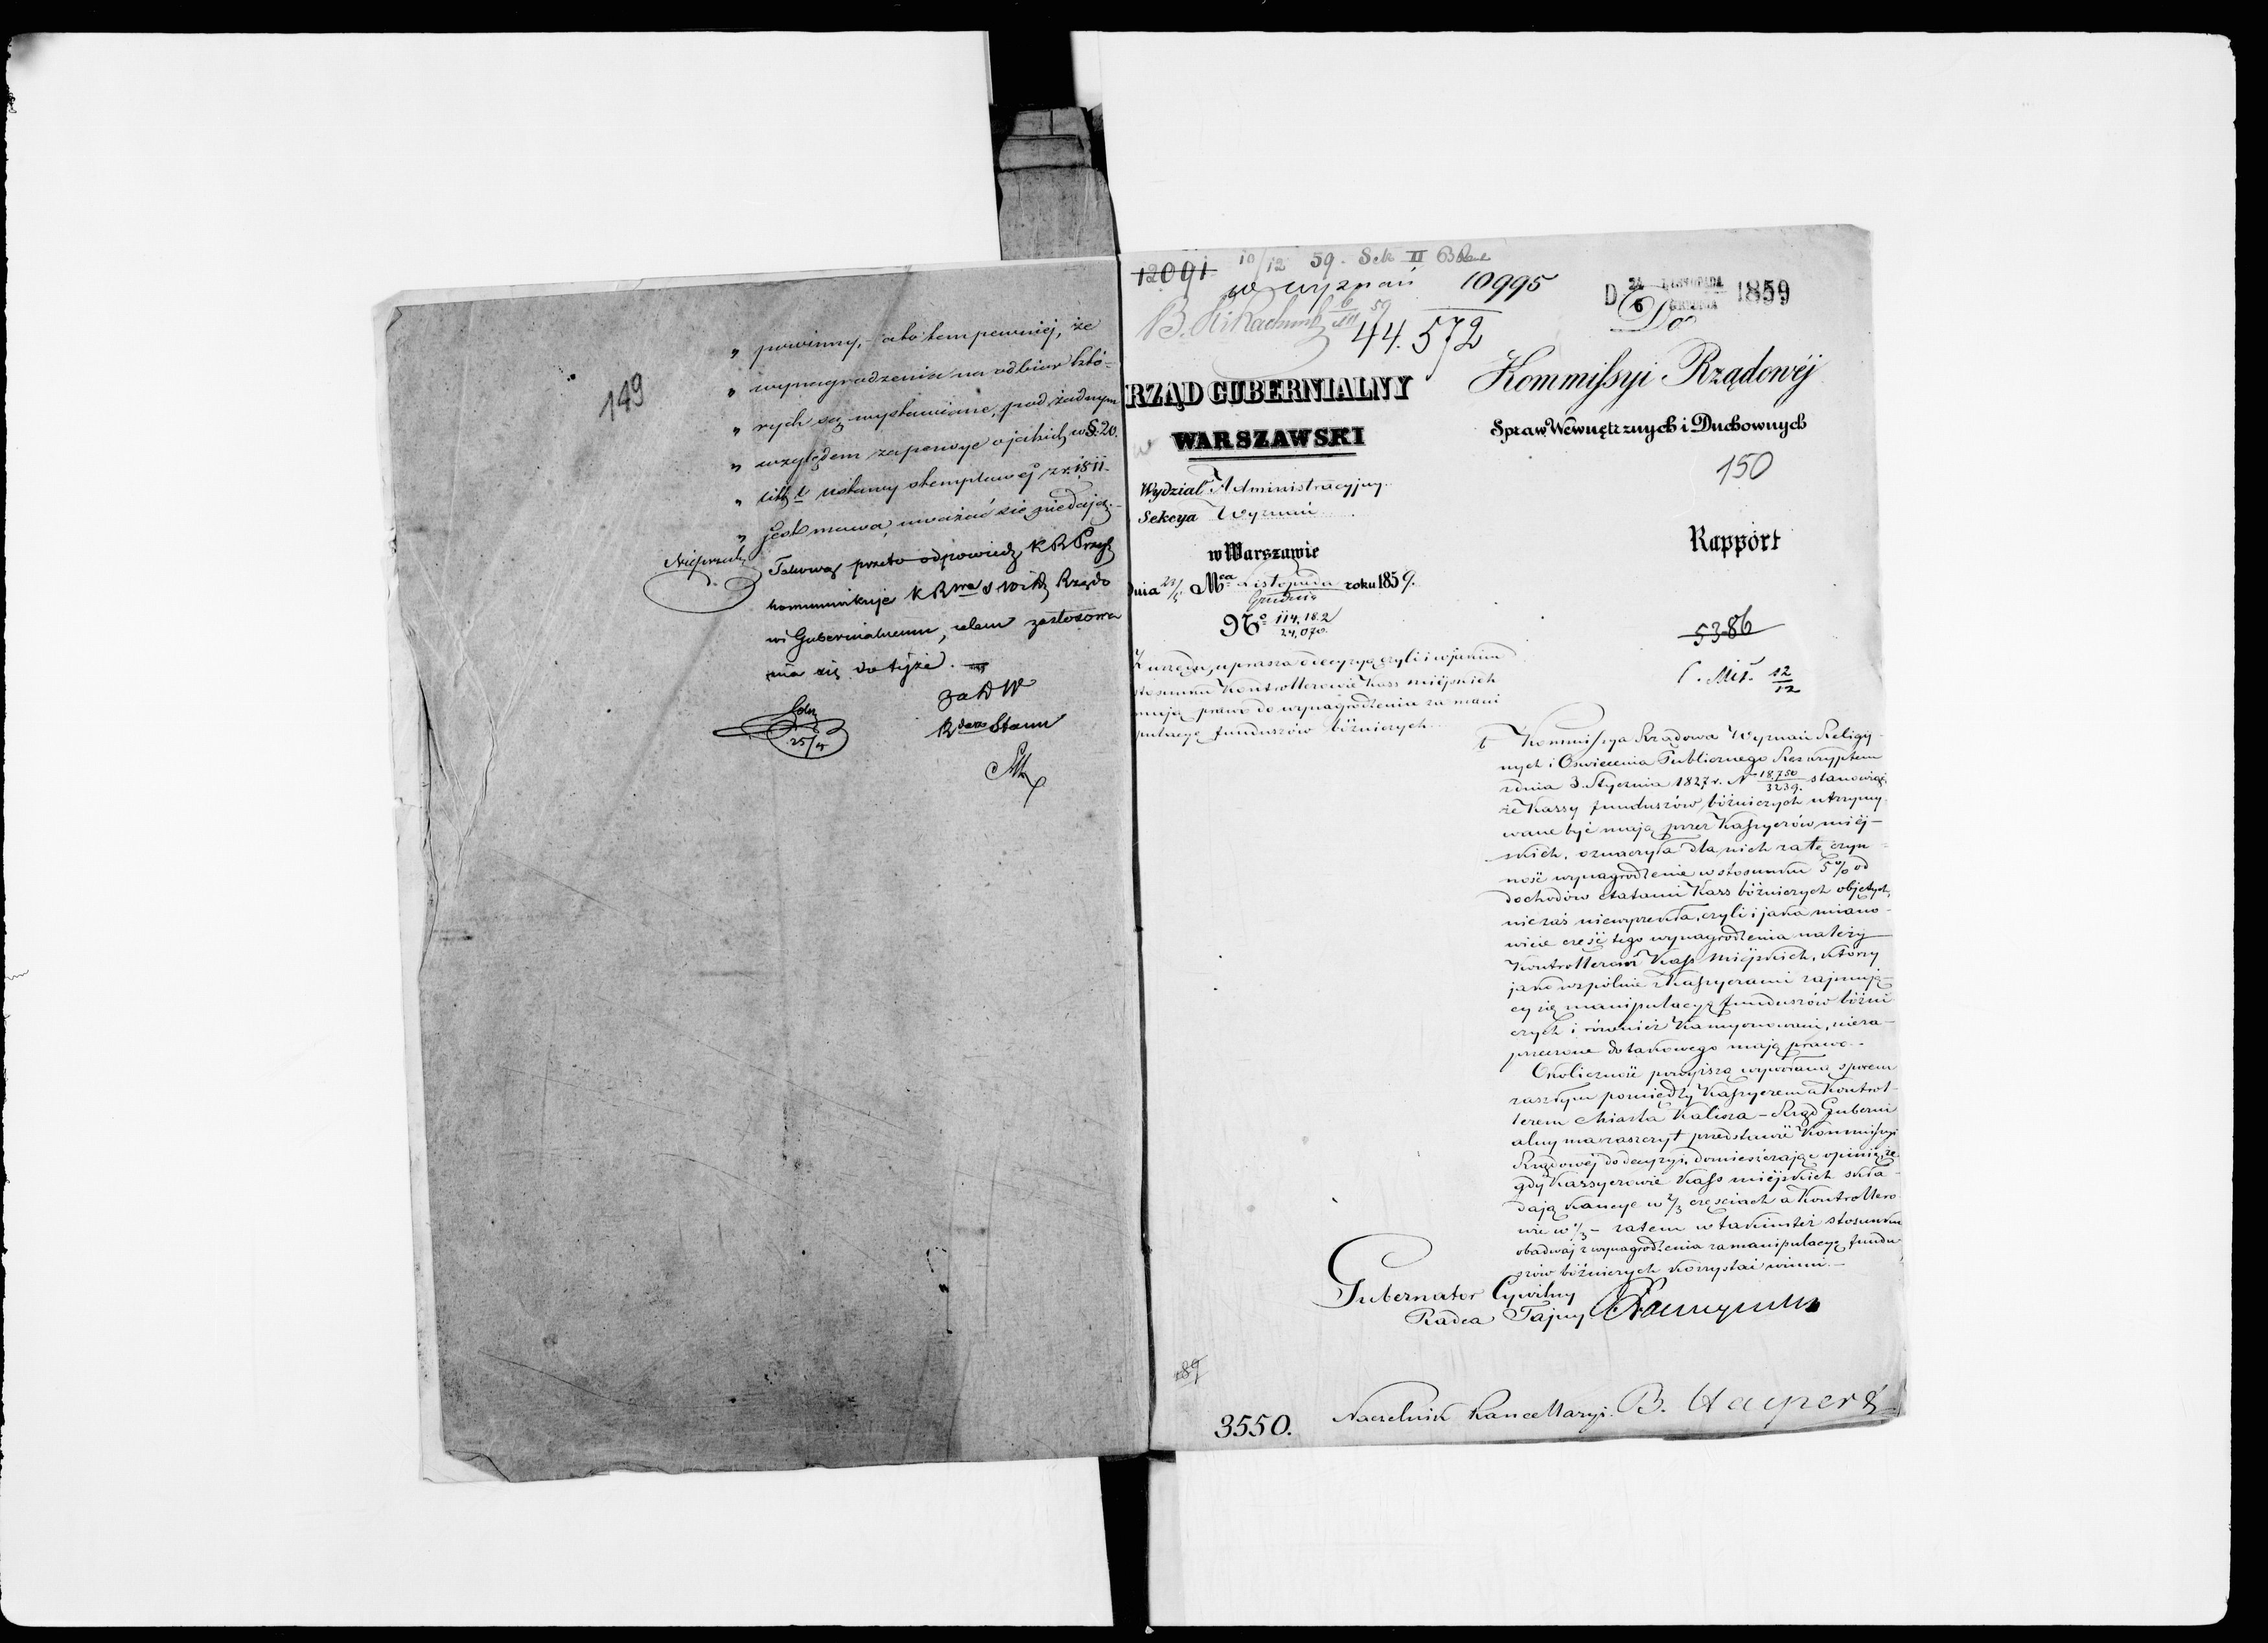 149
„ powinny, – a to tem pewniej, że
„ wynagrodzenia na odbiór któ-
„ rych są wystawione, pod żadnym
„ względem za pensye o jakich w §. 20.
„ litt t ustawy stemplowej z r. 1811.
„ jest mowa, uważać się nie dają. –
Takową przeto odpowiedź K R Przych
kommunikuje K R Rządo
wi Gubernialnemu, celem zastosowa
nia się do tejże.
za D W
Stanu
25/
12091 10/12 59. Sek II
w wyznań 10995
44.572
D 24/6 LISTOPADA/GRUDNIA 1859
Do
Kommissyi Rządowéj
Spraw Wewnętrznych i Duchownych
150
RZĄD GUBERNIALNY
WARSZAWSKI
Wydział Administracyjny
Sekcya Wyznań
w Warszawie
dnia 23/5 Mca Listopada/Grudnia roku 1859.
No 114,182/24,070.
Rapport
5386
12/12
Z urzędu, uprasza o decyzyą czyli i w jakim
stosunku Kontrollerowie Kass miejskich
mają prawo do wynagrodzenia za mani
pulacyę funduszów bóżniczych.
Kommissya Rządowa Wyznań Religij-
nych i Oświecenia Publicznego Reskryptem
z dnia 3 Stycznia 1827 r. N 18,750/3239. stanowiąc,
że Kassy funduszów bóżniczych utrzymy-
wane być mają przez Kassyerów miej-
skich, oznaczyła dla nich za tę czyn-
ność wynagrodzenie w stosunku 5% od
dochodów etatami Kass bóżniczych objętych,
nie zaś niewyrzekła, czyli i jaka miano-
wicie część tego wynagrodzenia należy
Kontrollerom Kass Miejskich, którzy
jako wspólnie z Kassyerami zajmują-
cy się manipulacyą funduszów bóżni
czych i również kaucyonowani, nieza-
przeczone do takowego mają prawo. –
Okoliczność powyższą wywołaną sporem
zaszłym pomiędzy Kassyerem a Kontrol-
lerem Miasta Kalisza – Rząd Guberni
alny ma zaszczyt przedstawić Kommissyi
Rządowéj do decyzyi, domieszczając opinię, że
gdy Kassyerowie Kass miejskich skła-
dają kaucye w 2/3 częściach a Kontrollero
wie w 1/3 – zatem w takimże stosunku
obadwaj z wynagrodzenia za manipulacyę fundu
szów bóżniczych korzystać winni. –
Gubernator Cywilny
Radca Tajny
3550.
Naczelnik Kancellaryi. B.